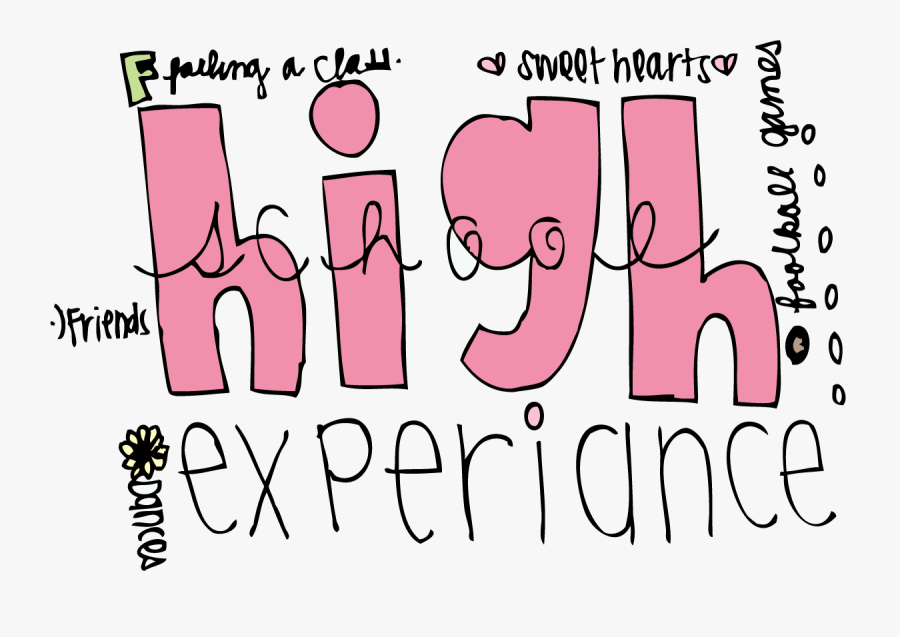 F failing a class.
sweet hearts
football games
high
school
:)Friends
experiance
Dances